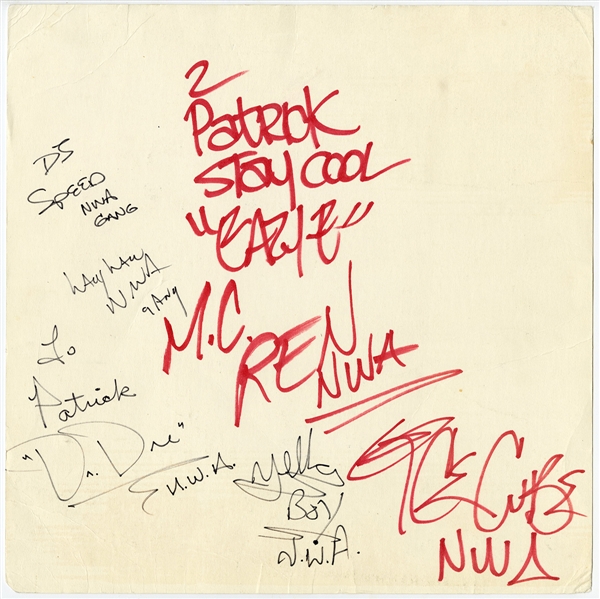 2
Patrick
Stay Cool
"Eazy-E"
M.C.
REN
NWA
DJ
SPEED
NWA
GANG
NWA
gang
To
Patrick
"Dr. Dre"
N.W.A.
Yella
Boy
N.W.A.
ICE CUBE
NWA